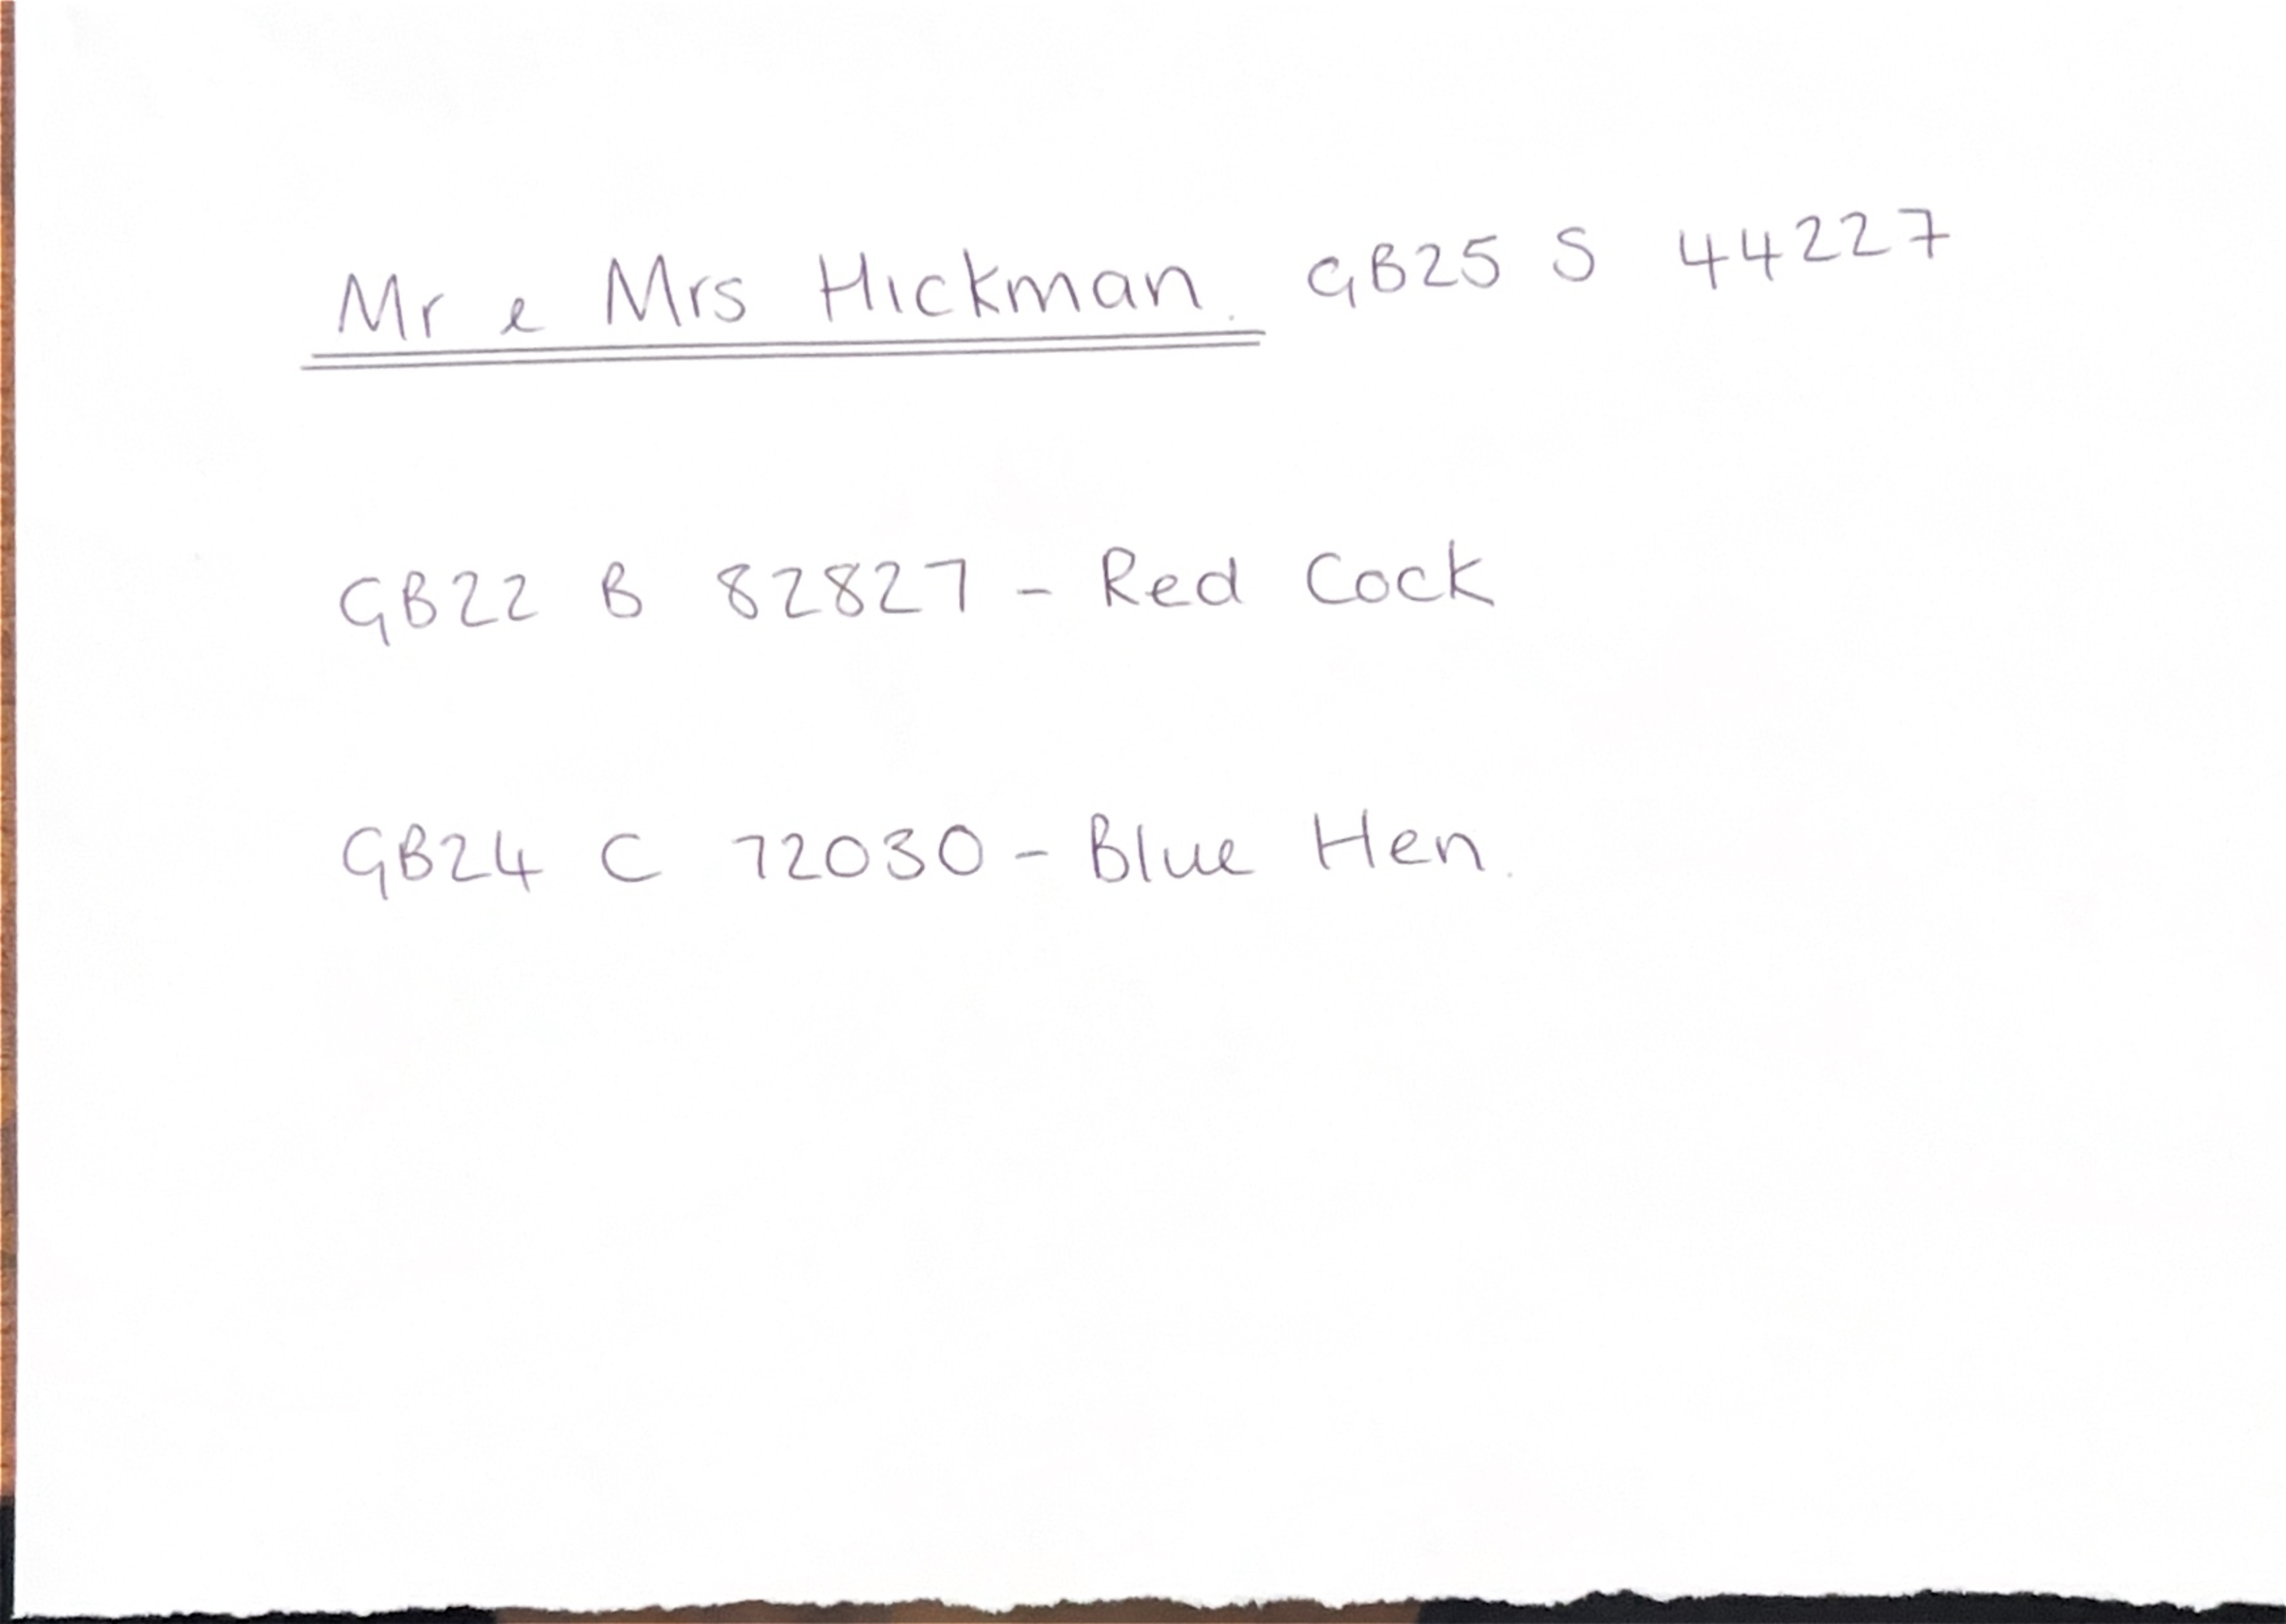 Mr & Mrs Hickman. GB25 S 44227
GB22 B 82827 - Red Cock
GB24 C 72030 - Blue Hen.